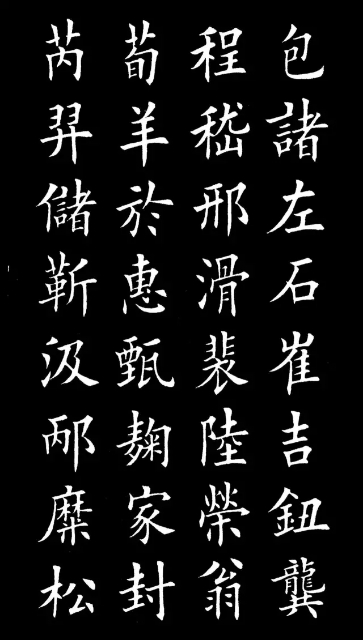 包諸左石崔吉鈕龔
程嵇邢滑裴陸榮翁
荀羊於惠甄麹家封
芮羿儲靳汲邴糜松